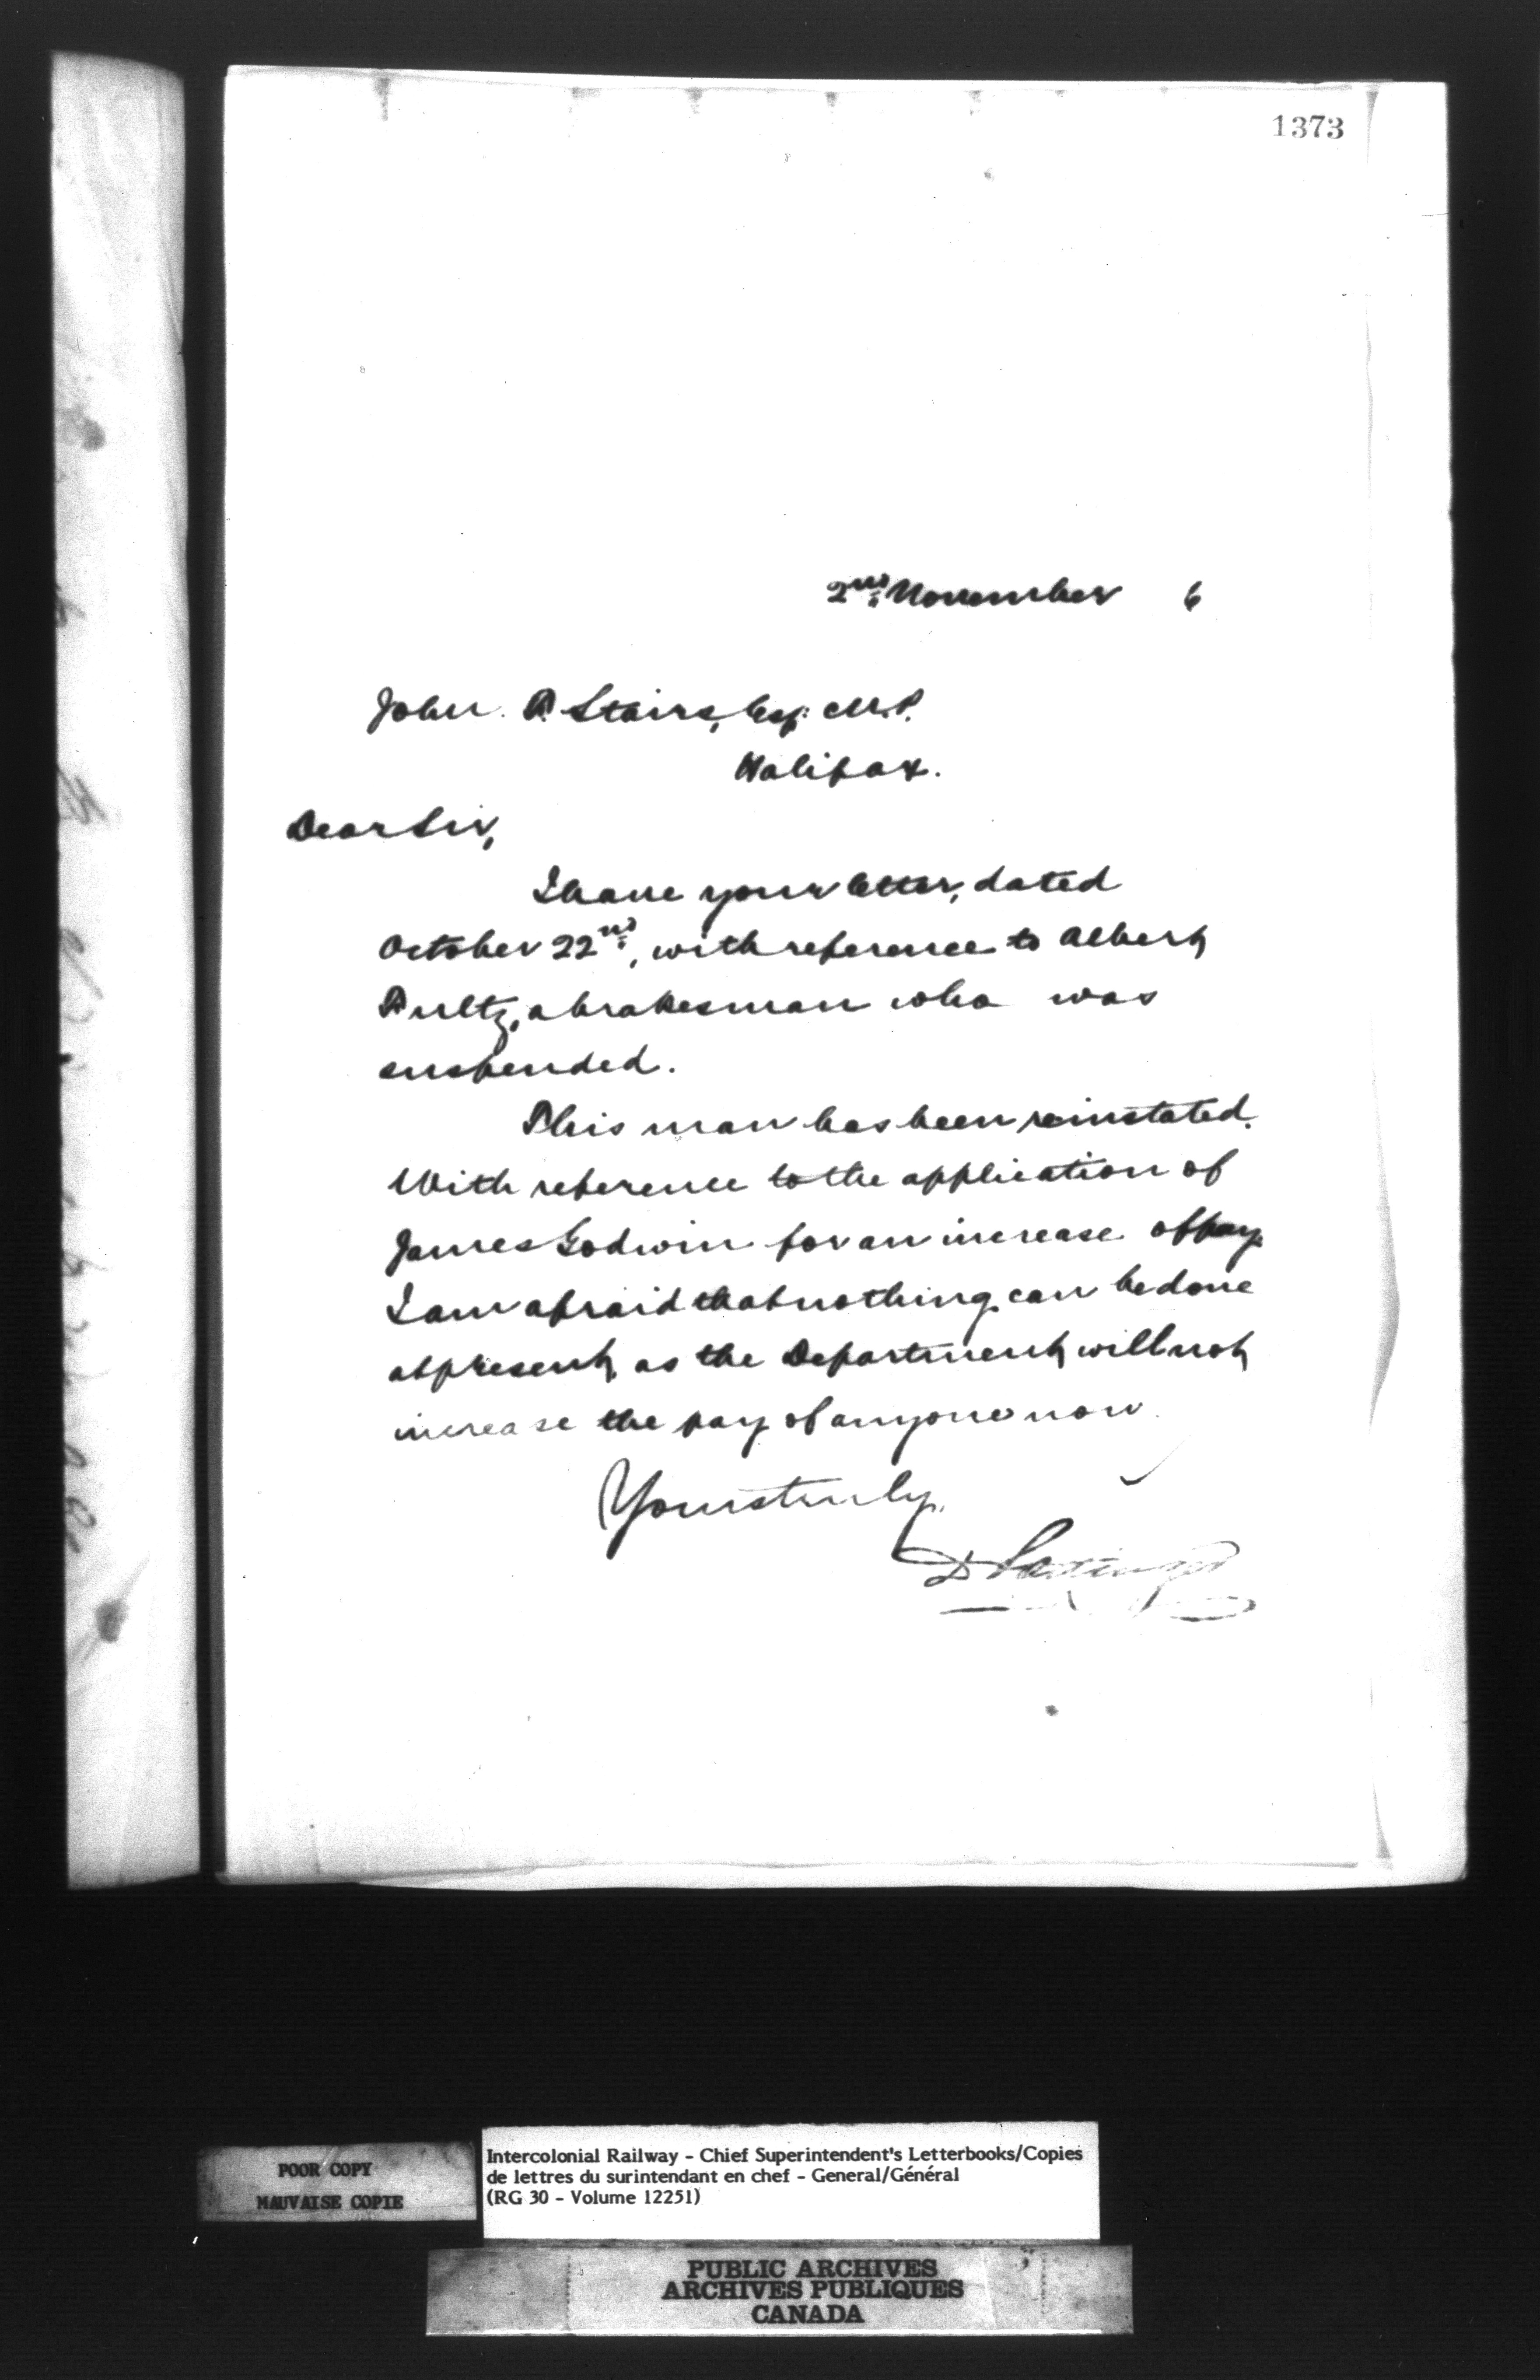 1373
2nd November 6
John F. Stairs, Esq. M.P.
Halifax.
Dear Sir,
I have your letter, dated
October 22nd, with reference to Albert
Pultz, a brakesman who was
suspended.
This man has been reinstated.
With reference to the application of
James Godwin for an increase of pay.
I am afraid that nothing can be done
at present, as the Department will not
increase the pay of anyone now.
Yours truly,
D Pottinger
POOR COPY
MAUVAISE COPIE
Intercolonial Railway - Chief Superintendent's Letterbooks/Copies
de lettres du surintendant en chef - General/Général
(RG 30 - Volume 12251)
PUBLIC ARCHIVES
ARCHIVES PUBLIQUES
CANADA